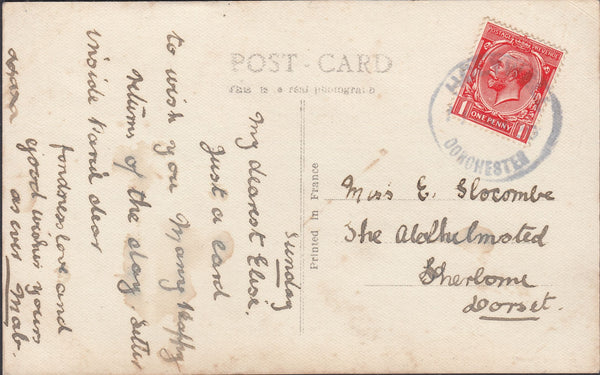 POST - CARD
This is a real photograph
Printed in France
Sunday
My dearest Elsie.
Just a card
to wish you Many Happy
returns of the day letter
inside Parcl dear
fondness love and
good wishes yours
as ever Mab.
xxxxx
Miss E. Slocombe
The Aldhelmsted
Sherborne
Dorset.
POSTAGE REVENUE
1 ONE PENNY 1
DORCHESTER